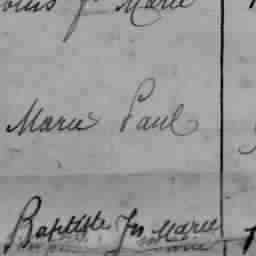 Marie
Marie Paul
Baptiste Jn Marie